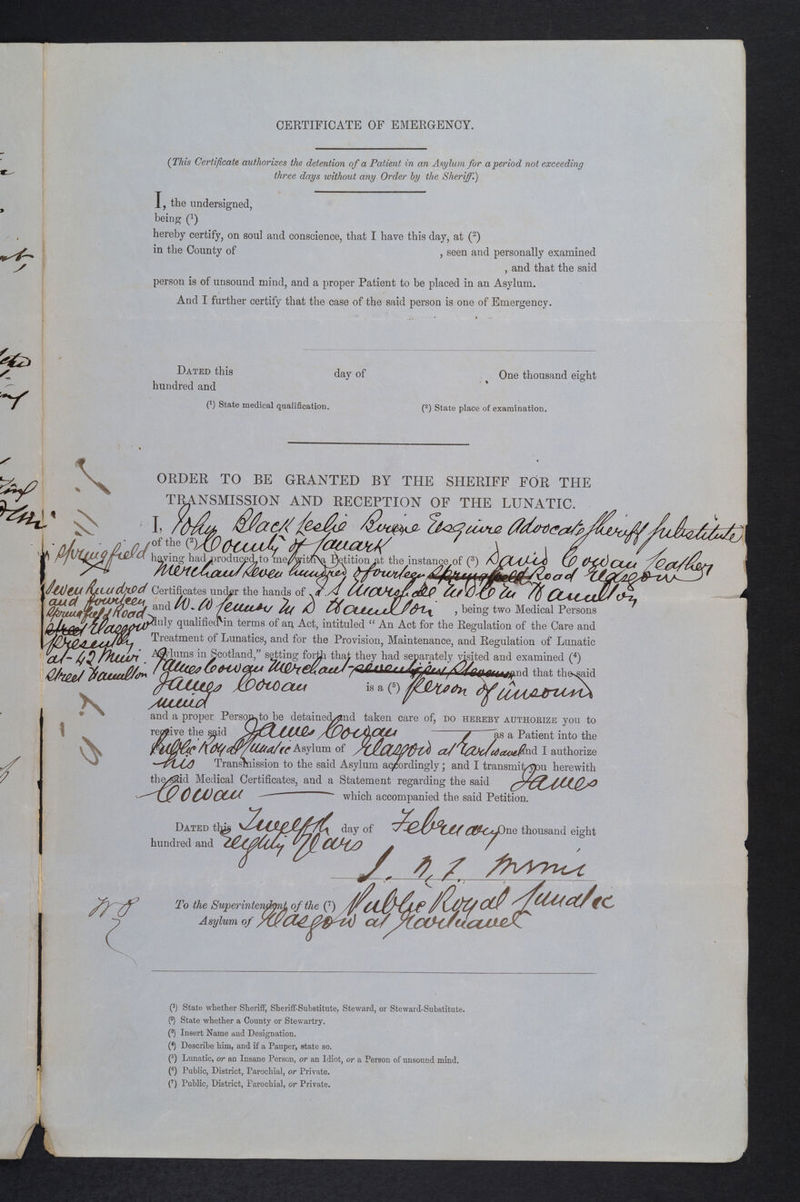 CERTIFICATE OF EMERGENCY.
(This Certificate authorizes the detention of a Patient in an Asylum for a period not exceeding
three days without any Order by the Sheriff.)
I, the undersigned,
being (¹)
hereby certify, on soul and conscience, that I have this day, at (²)
in the County of , seen and personally examined
, and that the said
person is of unsound mind, and a proper Patient to be placed in an Asylum.
And I further certify that the case of the said person is one of Emergency.
DATED this day of , One thousand eight
hundred and
(¹) State medical qualification. (²) State place of examination.
ORDER TO BE GRANTED BY THE SHERIFF FOR THE
TRANSMISSION AND RECEPTION OF THE LUNATIC.
I, John Black Leslie Birnie Esquire Advocate Sheriff Substitute
of the (²) County of Lanark
having had produced to me with a Petition at the instance of (³) David Cowan Leather
Merchant Seven hundred & fourteen Springfield Road Glasgow
Certificates under the hands of Middle in Hamilton
and W. W Lennox M D Hamilton, being two Medical Persons
duly qualified in terms of an Act, intituled “ An Act for the Regulation of the Care and
Treatment of Lunatics, and for the Provision, Maintenance, and Regulation of Lunatic
Asylums in Scotland,” setting forth that they had separately visited and examined (⁴)
James Cowan Merchant and that the said
James Cowan is a (⁵) Person of unsound
mind
and a proper Person to be detained and taken care of, DO HEREBY AUTHORIZE you to
receive the said James Cowan as a Patient into the
Public Royal Lunatic Asylum of Glasgow at Gartnavel and I authorize
his Transmission to the said Asylum accordingly; and I transmit you herewith
the said Medical Certificates, and a Statement regarding the said James
Cowan which accompanied the said Petition.
Springfield
Seven hundred
and fourteen
Springfield Road
Glasgow
Presently
at 42 Muir
Street Hamilton
DATED this Twelfth day of February One thousand eight
hundred and eighty years
To the Superintendent of the (⁷) Public Royal Lunatic
Asylum of Glasgow at Gartnavel
(¹) State whether Sheriff, Sheriff-Substitute, Steward, or Steward-Substitute.
(²) State whether a County or Stewartry.
(³) Insert Name and Designation.
(⁴) Describe him, and if a Pauper, state so.
(⁵) Lunatic, or an Insane Person, or an Idiot, or a Person of unsound mind.
(⁶) Public, District, Parochial, or Private.
(⁷) Public, District, Parochial, or Private.